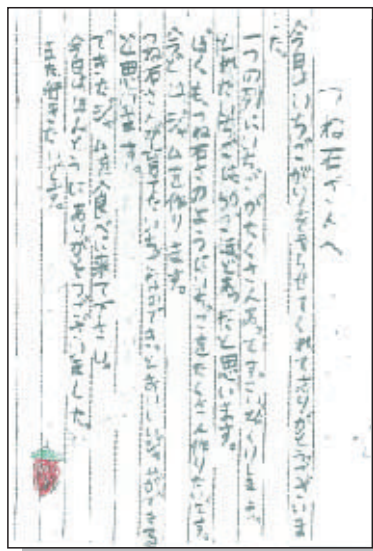 つね石さんへ
今日は、いちごがりをさせてくれてありがとうございま
た。
一つの列にいちごがたくさんあってすごいびっくりしまし
とれたいちごは、50こほどあったと思います。
ぼくも、つね石さんのようにいちごをたくさん作りたいです。
今どは、ジャムを作ります。
つね石さんが育てたいちごなので、きっとおいしいジャムができる
と思います。
できたジャムをまた食べに来て下さい。
今日は、ほんとうにありがとうございました。
また行きたいです。